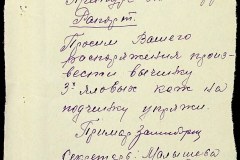 Рапорт.
Просим Вашего
распоряжения произ-
вести вычинку
3х яловых кож на
подчинку упряжи.
Секретарь: Малышева